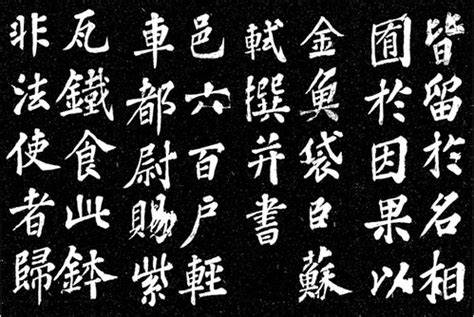 皆留於名相
囿於因果以
金魚袋臣蘇
軾撰并書
邑六百戶輕
車都尉賜紫
瓦鐵食此鉢
非法使者歸